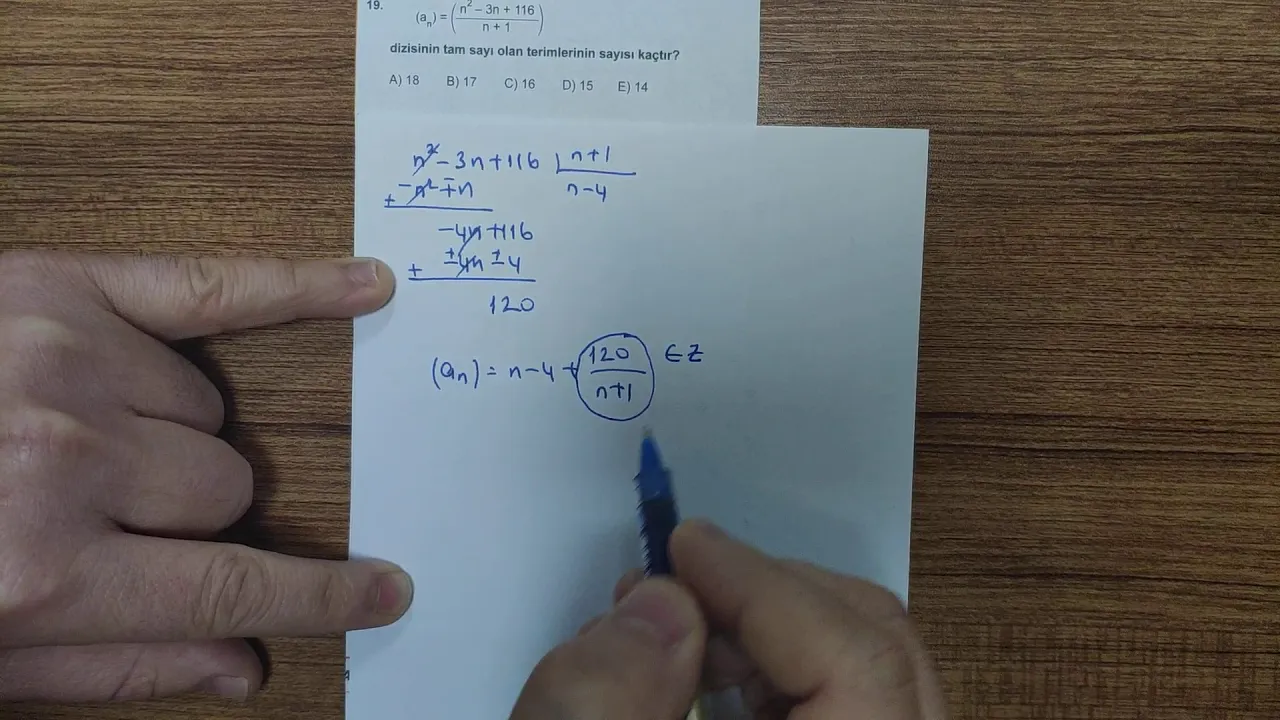 19.
(aₙ) = ( (n² – 3n + 116) / (n + 1) )
dizisinin tam sayı olan terimlerinin sayısı kaçtır?
A) 18 B) 17 C) 16 D) 15 E) 14
n² - 3n + 116 | n+1
+ -n² ∓ n n-4
-4n + 116
+ ±4n ± 4
120
(aₙ) = n - 4 + 120/(n+1) ∈ Z